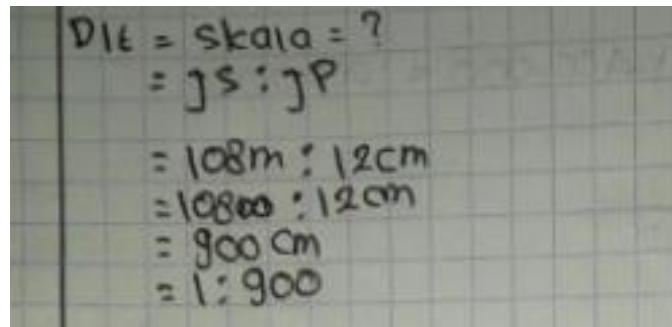 Dit = skala = ?
= JS : JP
= 108m : 12cm
= 10800 : 12cm
= 900 cm
= 1 : 900